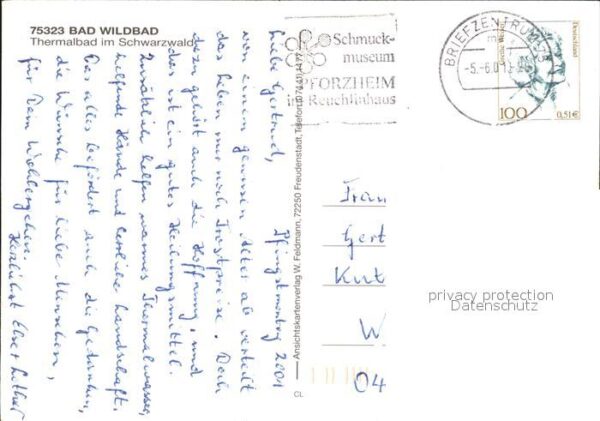 75323 BAD WILDBAD
Thermalbad im Schwarzwald
Pfingstmontag 2001
Liebe Gertrud,
von einem gewissen Alter ab verteilt
das Leben nur noch Trostpreise. Doch
dazu gehört auch die Hoffnung, und
das ist ein gutes Heilungsmittel.
Zusätzlich helfen warmes Thermalwasser,
helfende Hände und herrliche Landschaft.
Das alles befördert auch die Gedanken,
die Wünsche für liebe Menschen,
für Dein Wohlergehen.
Herzlichst Else + Lothar
Ansichtskartenverlag W. Feldmann, 72250 Freudenstadt, Telefon
CL
Schmuck-
museum
PFORZHEIM
im Reuchlinhaus
BRIEFZENTRUM 75
-5.-6.01
Deutschland
100
0,51€
Frau
Gert
Kut
W
04
privacy protection
Datenschutz